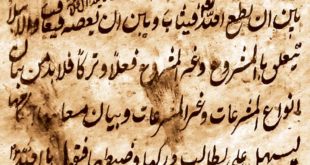 بين ان يطع الله فيثاب وبين ان يعصه فيعاقب
يتعلق بالمشروع وغير المشروع فعلا وتركا فلا بد من بيان
انواع المشروعات وغير المشروعات وبيان معانيها
ليسهل على الطالب دركها وضبطها فنقول